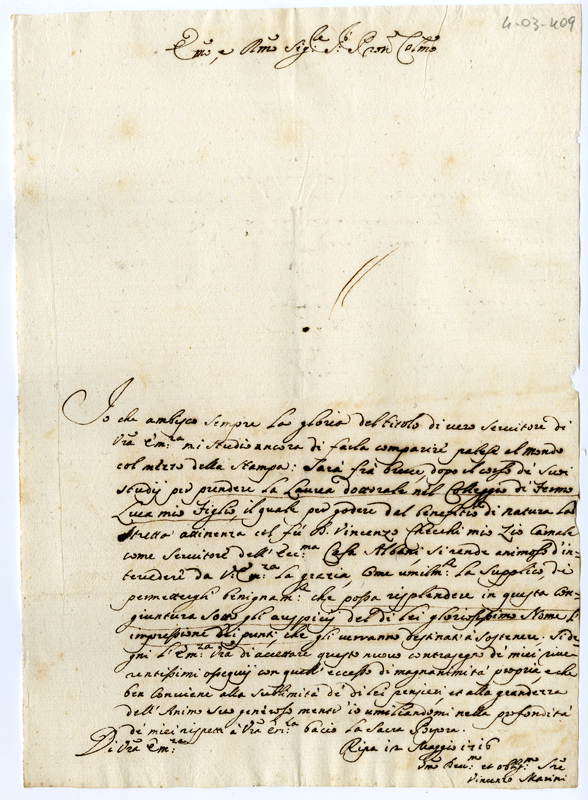 4-03-409
Emo, e Rmo Sig:re Sr. Pron Colmo
Io che ambisco sempre la gloria del titolo di vero servitore di
Vra Em:za mi studio ancora di farla comparire palese al mondo
col mezzo della Stampa: Sarà frà breve dopo il corso de suoi
studij per prendere la Laurea dottorale nel Colleggio di Fermo
Luca mio Figlio, il quale per godere dal beneficio di natura la
stretta attinenza col fù Vincenzo Checchi mio Zio Carnale
come servitore dell'Ecc:ma Casa Albani si rende animoso d'in=
tercedere da V: Em:za la grazia, come umilm:te la supplico, di
permettergli benignam:te che possa risplendere in questa con-
giuntura sotto gli auspicij del di lei gloriosissimo Nome l'
impressione dei punti che gli verranno destinati a sostenere. Si de-
gni l'Em:za Vra di accettare questo nuovo contrasegno de' miei rive
rentissimi ossequij con quell'eccesso di magnanimità propria, e che
ben conviene alla sublimità de' di lei pensieri, et alla grandezza
dell'Animo suo generoso mentr'io umiliandomi nella profondità
de miei rispetti à Vra Em:za bacio la Sacra Porpora.
Di Vra Em:za Ripa 12 Maggio 1716
Umo Dev:mo et obbl:mo Sre
Vincenzo Marini